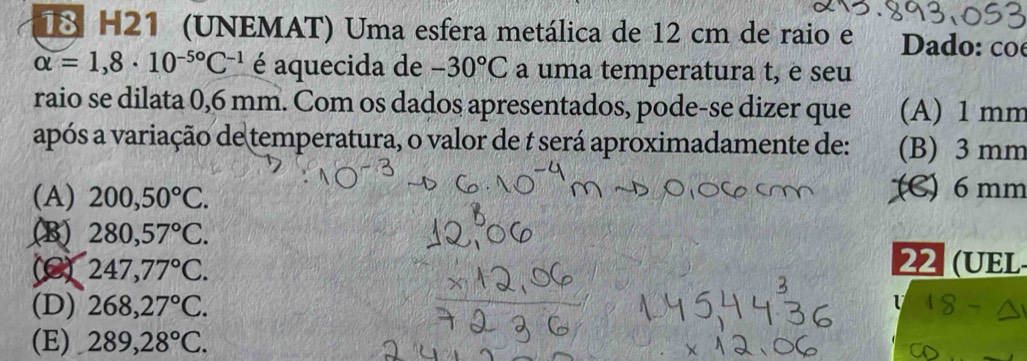 213.893,053
18 H21 (UNEMAT) Uma esfera metálica de 12 cm de raio e
α = 1,8 · 10⁻⁵°C⁻¹ é aquecida de –30°C a uma temperatura t, e seu
raio se dilata 0,6 mm. Com os dados apresentados, pode-se dizer que
após a variação de temperatura, o valor de t será aproximadamente de:
:10⁻³ → 6.10⁻⁴m → 0,06cm
(A) 200,50°C.
(B) 280,57°C.
(C) 247,77°C.
(D) 268,27°C.
(E) 289,28°C.
12,06
x 12,06
7236
145,4436
x 12,06
Dado:
(A) 1 mm
(B) 3 mm
(C) 6 mm
22 (UEL-
18 -